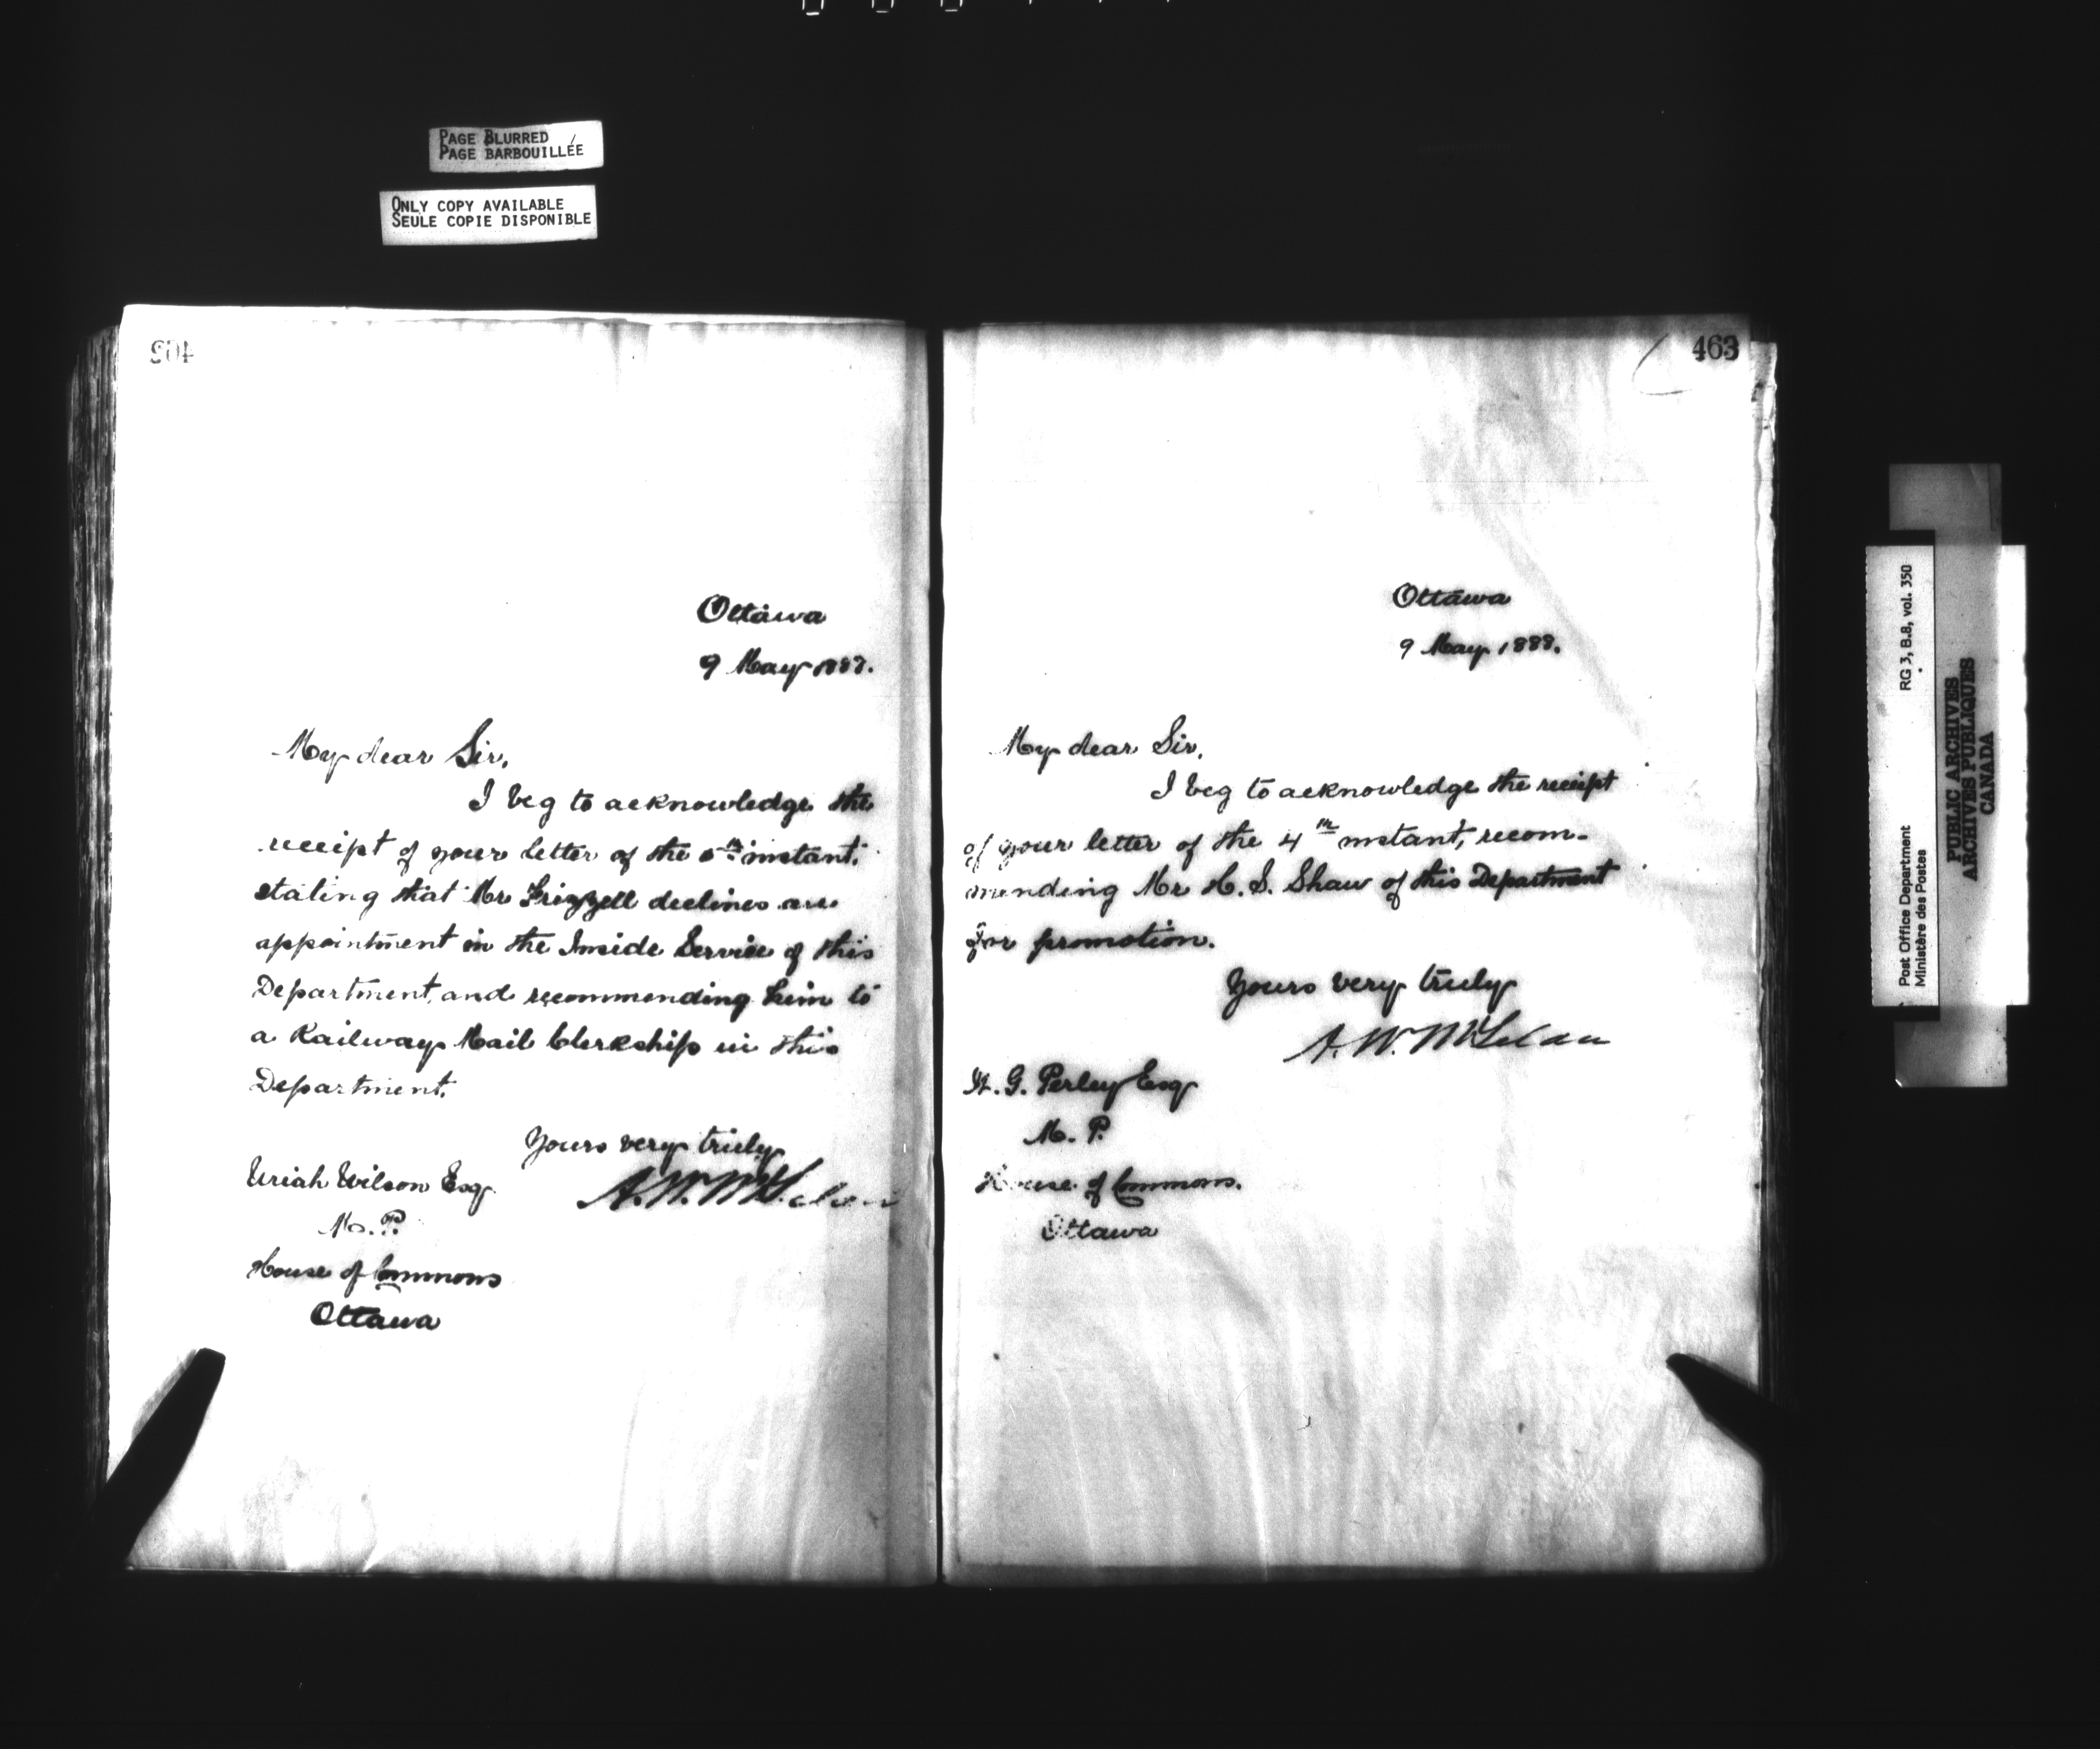 PAGE BLURRED
PAGE BARBOUILLÉE
ONLY COPY AVAILABLE
SEULE COPIE DISPONIBLE
Ottawa
9 May 1888.
My dear Sir,
I beg to acknowledge the
receipt of your letter of the instant,
stating that Mr Frizzell declines an
appointment in the Inside Service of this
Department, and recommending him to
a Railway Mail Clerkship in this
Department.
Yours very truly
A. W. McLelan
Uriah Wilson Esq
M. P.
House of Commons
Ottawa
463
Ottawa
9 May 1888.
My dear Sir,
I beg to acknowledge the receipt
of your letter of the 4th instant, recom-
mending Mr H. S. Shaw of this Department
for promotion.
Yours very truly
A. W. McLelan
W. G. Perley Esq
M. P.
House of Commons.
Ottawa
Post Office Department RG 3, B.8, vol. 350
Ministère des Postes
PUBLIC ARCHIVES
ARCHIVES PUBLIQUES
CANADA